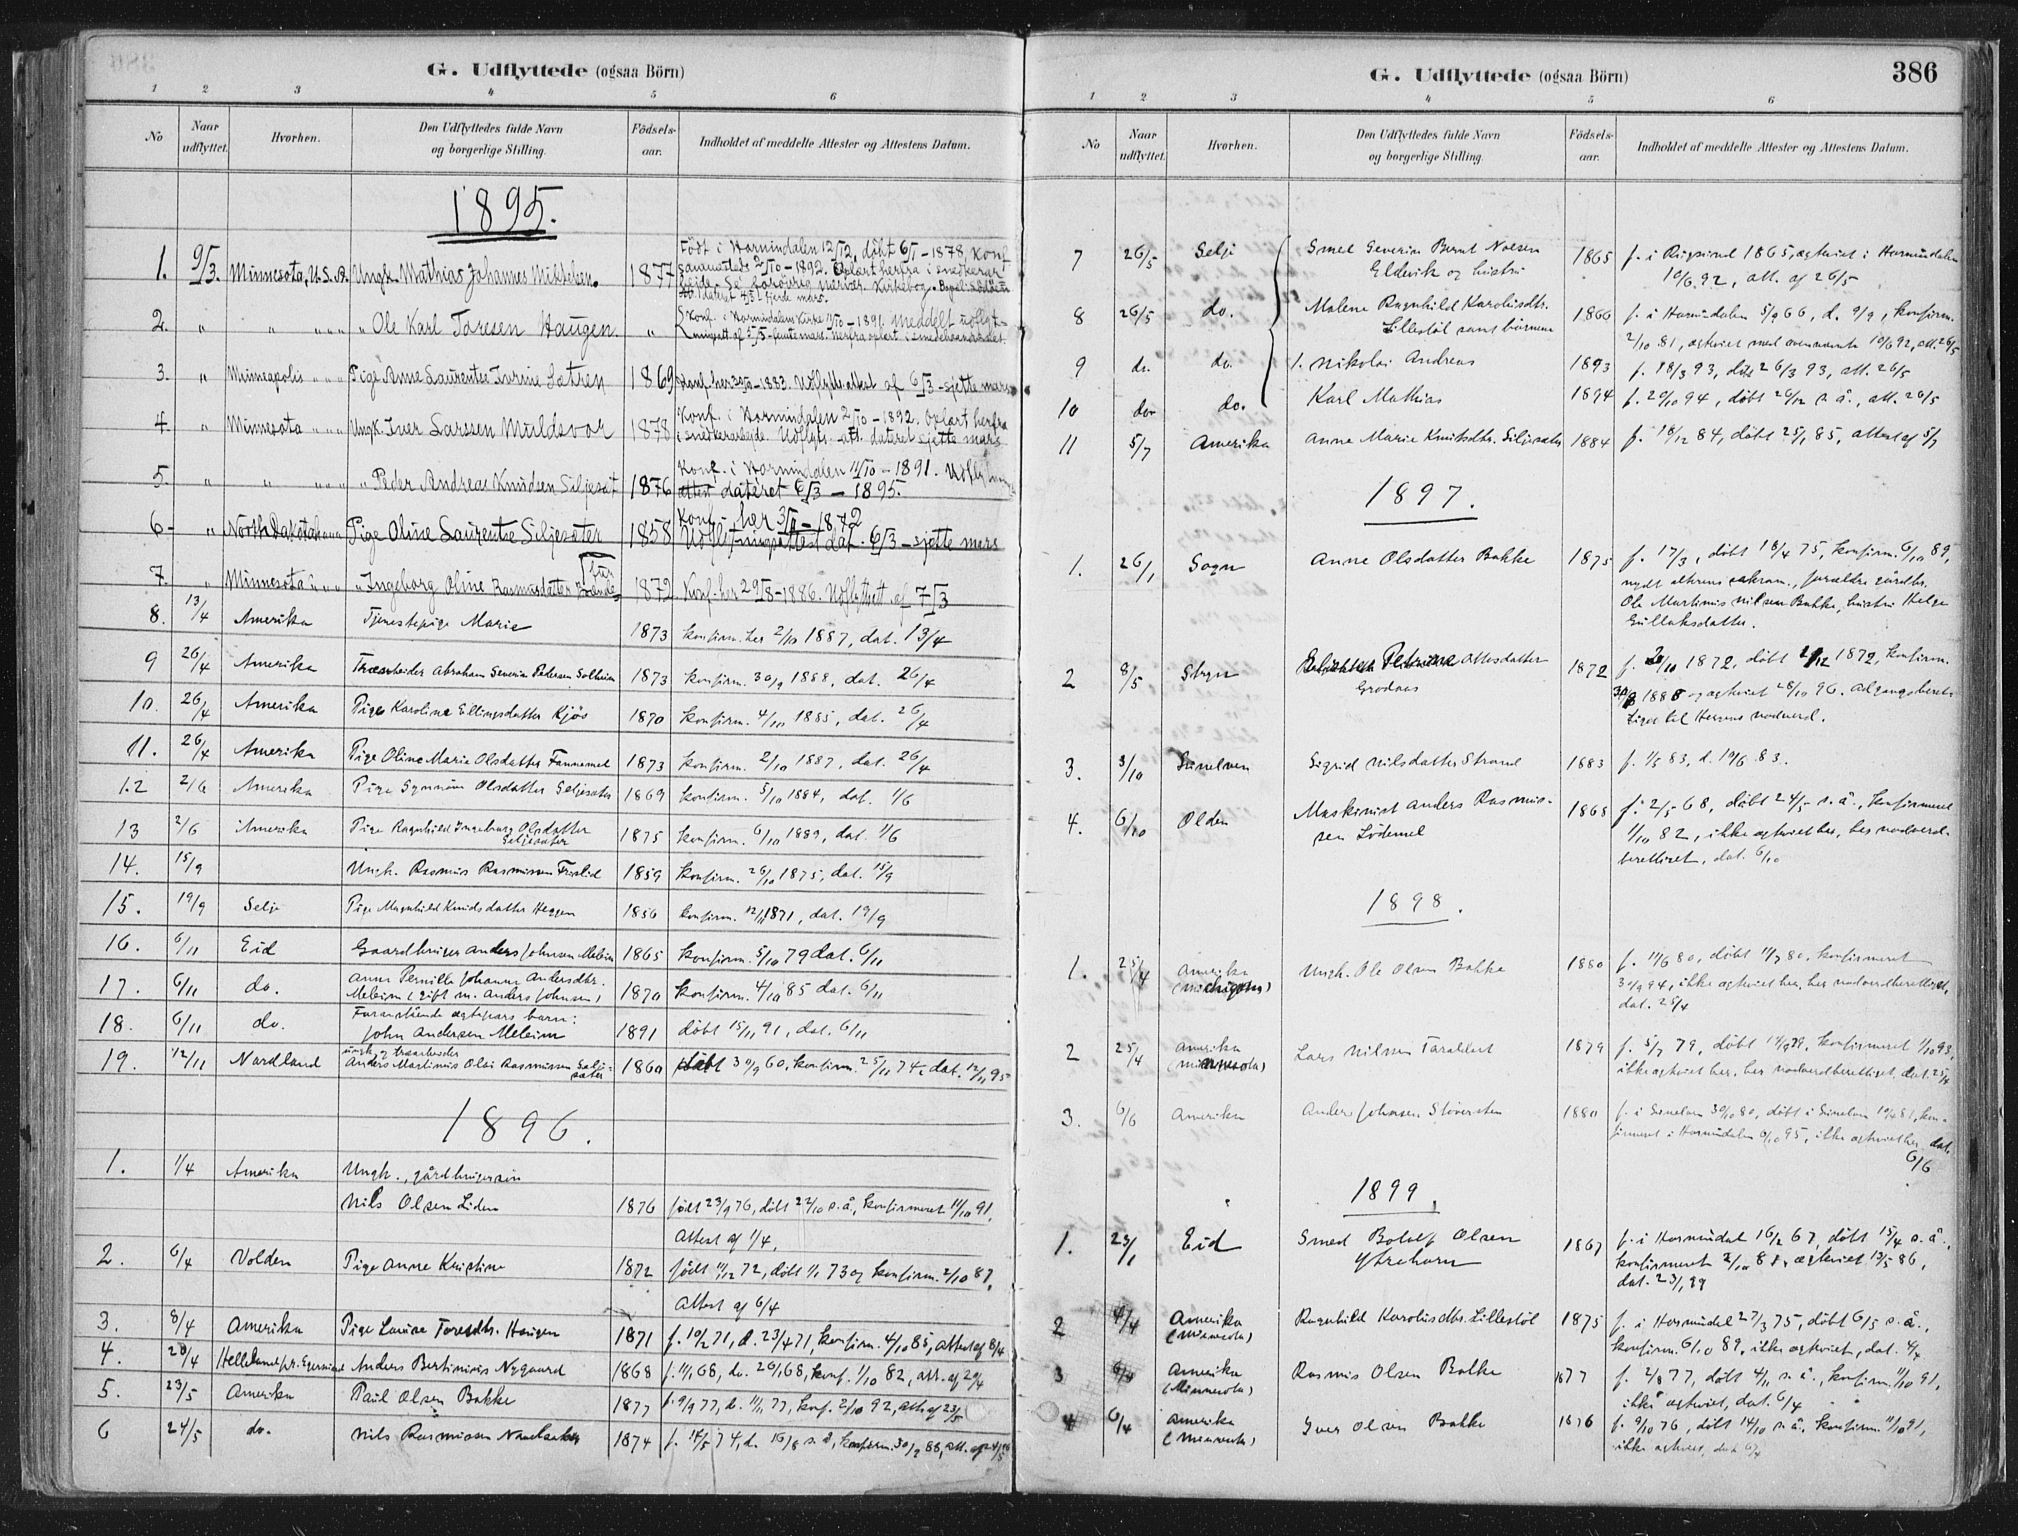 G. Udflyttede (ogsaa Börn)
1 2 3 4 5 6
No
Naar udflyttet.
Hvorhen.
Den Udflyttedes fulde Navn og borgerlige Stilling.
Födsels-aar.
Indholdet af meddelte Attester og Attestens Datum.
1895.
Födt i Hornindalen 12/12, döbt 6/1 - 1878, Konf.
1. 9/3. Minnesota, U.S.A. Ungk. Mathias Johannes Mikkelsen. 1877 sammesteds 2/10 - 1892. Oplært herfra i snedkerar-
2. " " " " " Ole Karl Toresen Haugen. " Konf. i Hornindalens Kirke 11/10 - 1891. meddelt udflyt-
3. " Minneapolis " " " Pige Anne Laurentse Iverine Sætren 1869 Konf. her 30/9 - 1883. Udflytt. attest af 6/3 - sjette mars
4. " Minnesota " " " Ungk. Iver Larssen Muldsvor 1878 Konf. i Hornindalen 2/10 - 1892. Oplært herfra
i snedkerarbejde. Udflytt. att. dateret sjette mars
5. " " " " " Peder Andreas Knudsen Siljesæt 1876 Konf. i Hornindalen 11/10 - 1891. Udflytn.
attest dateret 6/3 - 1895.
6 " North Dakota Pige Oline Laurentse Siljesæter 1858 Konf. her 3/11 - 1872
Udflytningsattest dat. 6/3 - sjette mars
7. " Minnesota " " " " Ingeborg Oline Rasmusdatter 1872 Konf. her 29/8 - 1886. Udflyttett af 7/3
8. 13/4 Amerika Tjenestepige Marie 1873 konfirm. her 2/10 1887, dat. 13/4
9 26/4 Amerika Træarbeider Abraham Severin Pedersen Solheim 1873 konfirm. 30/9 1888, dat. 26/4
10. 26/4 Amerika Pige Karoline Ellingsdatter Kjös 1870 konfirm. 4/10 1885, dat. 26/4
11. 26/4 Amerika Pige Oline Marie Olsdatter Fannemel 1873 konfirm. 2/10 1887, dat. 26/4
12 2/6 Amerika Pige Synnöve Olsdatter Seljesæter 1869 konfirm. 5/10 1884, dat. 1/6
13 2/6 Amerika Pige Ragnhild Ingeborg Olsdatter Seljesæter 1875 konfirm. 6/10 1889, dat. 1/6
14. 15/9 Ungk. Rasmus Rasmussen 1859 konfirm. 26/10 1875, dat. 15/9
15. 19/9 Selje Pige Magnhild Knudsdatter Heggen 1856 konfirm. 12/11 1871, dat. 19/9
16. 6/11 Eid Gaardbruger Anders Johnsen Meleim 1865 konfirm. 5/10 79 dat. 6/11
17. 6/11 do. Anne Pernille Johanne Andersdtr.
Meleim (gift m. Anders Johnsen) 1870 konfirm. 4/10 85 dat. 6/11
18. 6/11 do. Foranstående ægtepars barn:
John Andersen Meleim 1891 döbt 15/11 91, dat. 6/11
19. 12/11 Nordland ungk. træarbeider
Anders Martinus Olai Rasmussen Seljesæter 1860 döbt 30/9 60, konfirm. 25/11 74, dat. 12/11 95
1896.
1. 1/4 Amerika Ungk., gårdbrugersön
Nils Olsen Lidem 1876 födt 23/9 76, döbt 22/10 s.å., konfirmeret 11/10 91.
Attest af 1/4.
2. 6/4 Volden Pige Anne Kristine 1872 födt 11/12 72, döbt 1/1 73 og konfirm. 2/10 87.
Attest af 6/4
3. 8/4 Amerika Pige Lovise Toresdtr. Haugen 1871 f. 10/2 71, d. 23/4 71, konfirm. 4/10 85, attest af 8/4
4. 20/4 Anders Bertinius Nygaard 1868 konf. 1/10 82, att. af 20/4
5. 23/5 Amerika Paul Olsen Bakke 1877 f. 9/9 77, d. 11/11 77, konf. 2/10 92, att. af 23/5
6 24/5 do. Nils Rasmussen 1874 f. 14/5 74, d. s.å., konfirm. 30/9 88, att. af 24/5
G. Udflyttede (ogsaa Börn)
386
1 2 3 4 5 6
No
Naar udflyttet.
Hvorhen.
Den Udflyttedes fulde Navn og borgerlige Stilling.
Födsels-aar.
Indholdet af meddelte Attester og Attestens Datum.
7 26/5 Selje Smed Severin Bernt Nolsen
Eldevik og hustru 1865 f. i 1865, ægteviet i Hornindalen
10/6 92, att. af 26/5
8 26/5 do. Malene Ragnhild Karolusdtr.
Lillestöl samt börnene 1866 f. i Hornindalen 5/9 66, d. 9/9, konfirm.
2/10 81, ægteviet med ovennævnte 10/6 92, att. 26/5
9 do. do. 1. Nikolai Andreas 1893 f. 18/3 93, döbt 26/3 93, att. 26/5
10 do. do. Karl Mathias 1894 f. 20/10 94, döbt 26/12 s.å., att. 26/5
11 5/7 Amerika Anne Marie Knutsdtr. Siljesæter 1884 f. 18/12 84, döbt 25/1 85, attest af 5/7
1897.
1. 26/1 Sogn Anne Olsdatter Bakke 1875 f. 17/3, döbt 18/4 75, konfirm. 6/10 89,
nydt altrens sakram., forældre gårdbr.
Ole Martinus Nilsen Bakke, hustru Helge
Gulleksdatter.
2 8/5 Stryn Petrine Attosdatter
Grodaas 1872 f. 20/10 1872, döbt 29/12 1872, konfirm.
30/9 1888 og ægteviet 28/10 96. Adgangsberet-
tiget til Herrens nadverd.
3. 3/10 Sunelven Sigrid Nilsdatter Strand 1883 f. 1/5 83, d. 19/6 83.
4. 6/10 Olden Maskinist Anders Rasmus-
sen Lödemel 1868 f. 2/5 68, döbt 24/5 s.å., konfirmeret
1/10 82, ikke ægteviet her, her nadverd-
berettiget, dat. 6/10
1898.
1. 25/4 Amerika
(Michigan) Ungk. Ole Olsen Bakke 1880 f. 11/6 80, döbt 11/7 80, konfirmeret
30/9 94, ikke ægteviet her, her nadverdberettiget,
dat. 25/4
2 25/4 Amerika
(Minnesota) Lars Nilsen Taraldset 1879 f. 5/7 79, döbt 14/9 79, konfirmeret 1/10 93,
ikke ægteviet her, her nadverdberettiget, dat. 25/4
3. 6/6 Amerika Anders Johnsen Stöversten 1880 f. i Sunelven 30/10 80, döbt i Sunelven 10/4 81, kon-
firmeret i Hornindalen 6/10 95, ikke ægteviet her, dat.
6/6
1899.
1. 23/1 Eid Smed Botolf Olsen
Ytrehorn 1867 f. i Hornindal 16/2 67, döbt 15/4 s.å.,
konfirmeret 2/10 81, ægteviet 13/5 86,
dat. 23/1 99
2 4/4 Amerika
(Minnesota) Ragnhild Karolusdtr. Lillestöl 1875 f. i Hornindal 27/3 75, döbt 6/5 s.å.,
konfirm. 6/10 89, ikke ægteviet, dat. 4/4
3 6/4 Amerika
(Minnesota) Rasmus Olsen Bakke 1877 f. 2/8 77, döbt 4/11 s.å., konfirm. 11/10 91,
ikke ægteviet, dat. 6/4
4 6/4 Amerika
(Minnesota) Iver Olsen Bakke 1876 f. 9/10 76, döbt 14/10 s.å., konfirm. 11/10 91,
ikke ægteviet, dat. 6/4